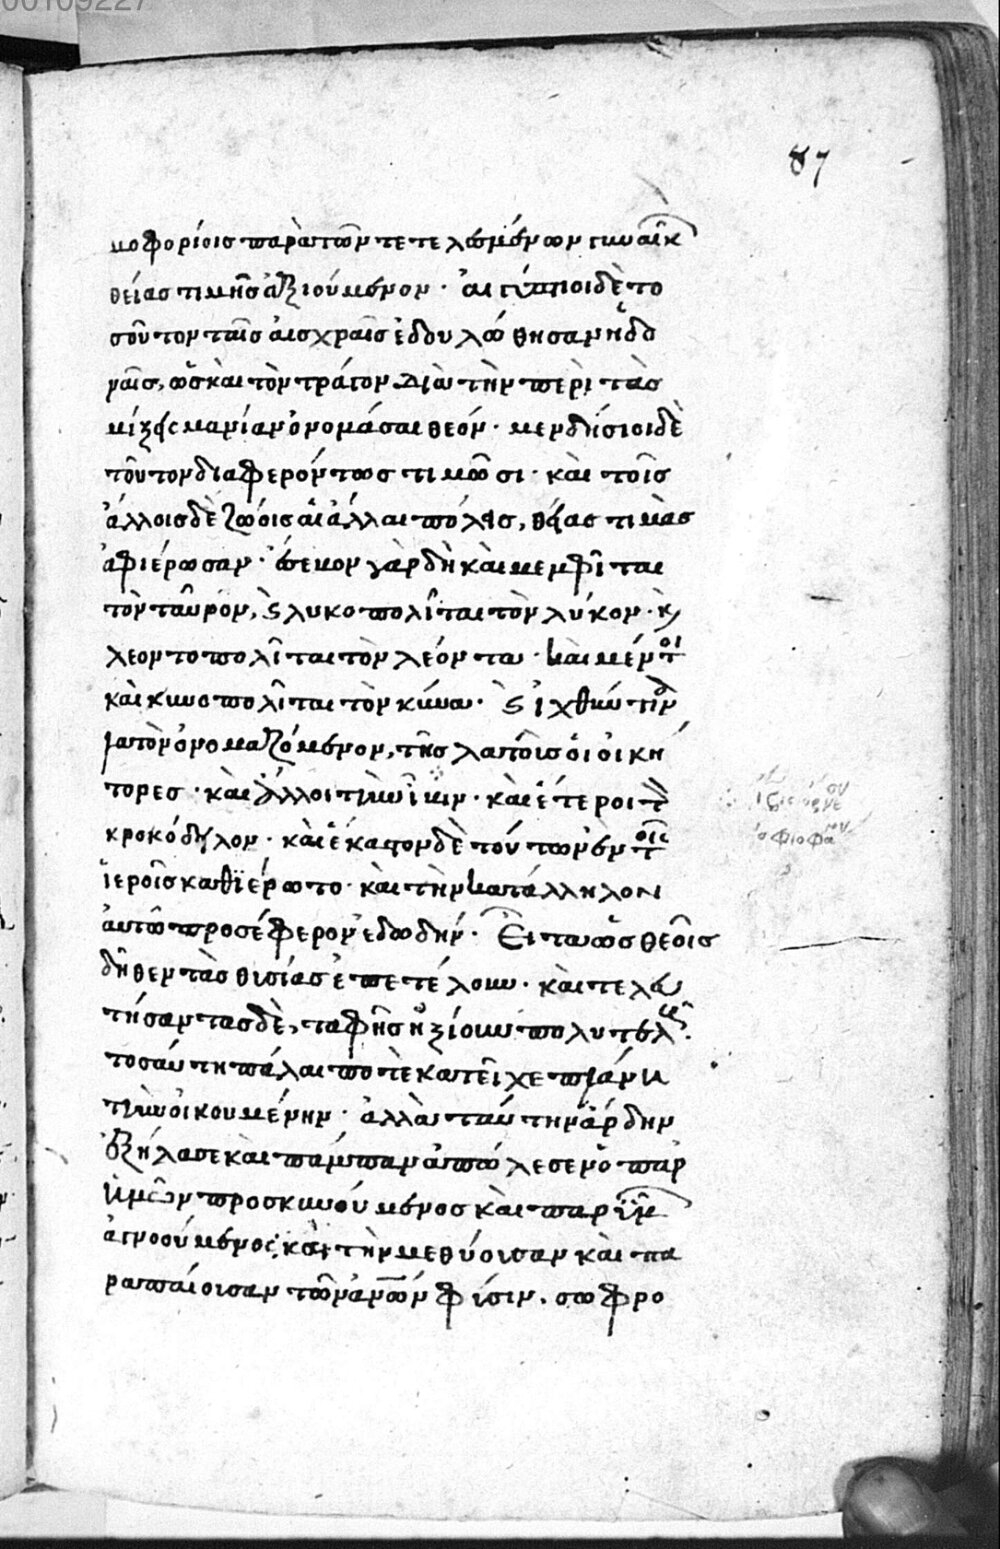 00109227
87
μοφορίοις παρὰ τῶν τετελεσμένων γυναικ
θείας τιμῆς ἀξιούμενον· αἰγύπτιοι δὲ το
σοῦτον ταῖς αἰσχραῖς ἐδουλώθησαν ἡδο
ναῖς, ὡς καὶ τὸν τράγον διὰ τὴν περὶ τὰς
μίξεις μανίαν ὀνομάσαι θεόν· μενδήσιοι δὲ
τοῦτον διαφερόντως τιμῶσι· καὶ τοῖς
ἄλλοις δὲ ζώοις αἱ ἄλλαι πόλεις, θείας τιμὰς
ἀφιέρωσαν· ἔσεμον γὰρ δὴ καὶ μεμφῖται
τὸν ταῦρον, καὶ λυκοπολῖται τὸν λύκον· καὶ
λεοντοπολῖται τὸν λέοντα· καὶ μέντοι
καὶ κυνοπολῖται τὸν κύνα· καὶ ἰχθὺν τὸν
λάτον ὀνομαζόμενον, τῆς λάτοις οἱ οἰκή
τορες· καὶ ἄλλοι τὴν ἶβιν· καὶ ἕτεροι τὸν
κροκόδηλον· καὶ ἕκαστον δὲ τούτων ἐν τοῖς
ἱεροῖς καθϊέρωτο· καὶ τὴν κατάλληλον
αὐτῶ προσέφερον ἐδωδήν· Εἶτα ὡς θεοῖς
δῆθεν τὰς θυσίας ἐπετέλουν· καὶ τελευ
τήσαντας δὲ, ταφῆς ἠξίουν πολυτελοῦς·
τοσαύτη πάλαι ποτὲ κατεῖχε πλάνη
τὴν οἰκουμένην· ἀλλὰ ταύτην ἄρδην
ἐξήλασε καὶ πάμπαν ἀπώλεσεν ὁ παρ
ἡμῶν προσκυνούμενος καὶ παρ ὑμῖν
ἀγνοούμενος· καὶ τὴν μεθύουσαν καὶ πα
ραπαίουσαν τῶν ἀνων φύσιν, σωφρο